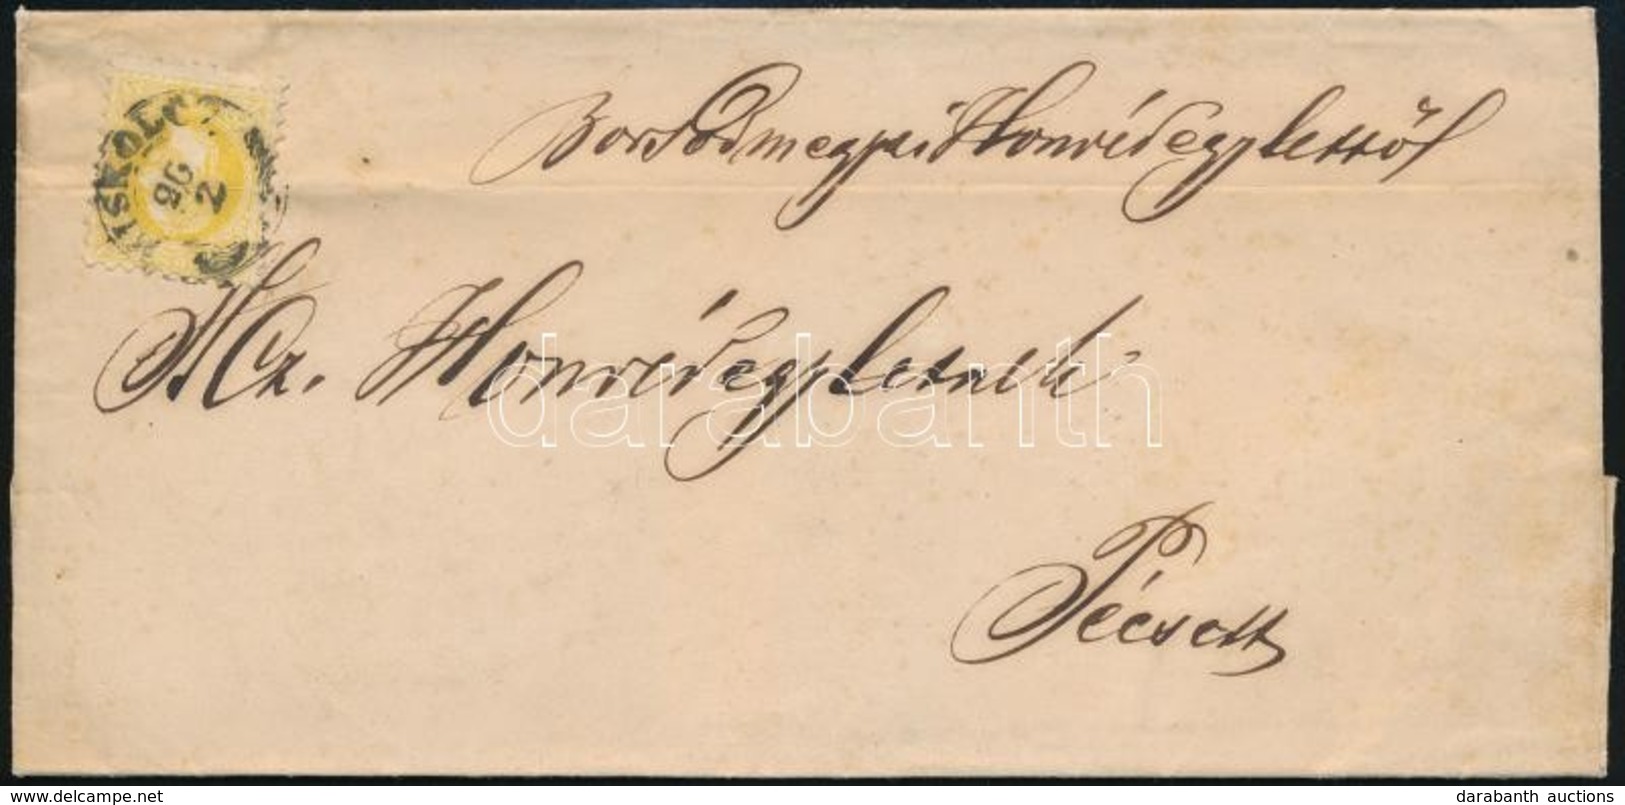 MISKOLCZ
26
2
Borsodmegyei Honvédegylettől
A Mz. Honvédegyletnek
Pécsett
darabanth
www.delcampe.net
darabanth auctions